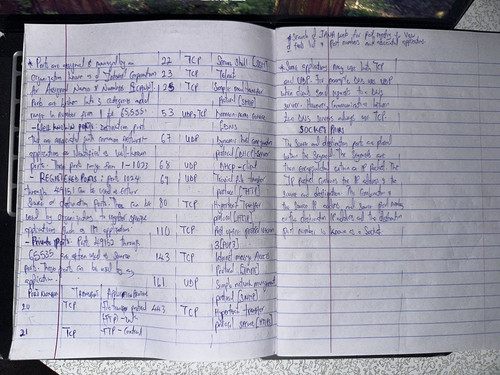 * Ports are assigned & managed by an
Organization known as of Internet Corporations
for Assigned Names & Numbers (ICANN).
Ports are broken into 3 categories and
range in number from 1 to 65,535.
- WELL KNOWN PORTS: Destination port
that are associated with common network
applications are identified as well-known
ports. These ports range from 1 to 1023
- REGISTERED PORTS: Ports 1024
through 49151 can be used as either
Source or destination ports. These can be
used by organizations to register specific
applications such as IM applications
- Private ports: Ports 49152 through
65535 are often used as source
ports. These ports can be used by
application.
Port Number Transport Application
20 TCP File transfer protocol
(FTP) - Data
21 TCP FTP - Control
22 TCP Secure Shell [SSH]
23 TCP Telnet
25 TCP Simple mail transfer
protocol [SMTP]
53 UDP, TCP Domain name
(DNS
67 UDP Dynamic host
protocol (DHCP) Server
68 UDP DHCP - Client
69 UDP Trivial file transfer
protocol [TFTP]
80 TCP Hypertext Transfer
protocol [HTTP]
110 TCP Post office protocol
3 [POP3]
143 TCP Internet message Access
Protocol [IMAP]
161 UDP Simple network management
protocol [SNMP]
443 TCP Hypertext transfer
protocol secure [HTTPS]
* Search of Internet ports
of ports list & Port numbers and associated applications
* Some applications may use both TCP
and UDP. For example DNS use UDP
when clients send requests to a DNS
server. However Communication between
two DNS servers always use TCP.
SOCKET PAIRS
The source and destination ports are placed
within the segment. The segments are
then encapsulated within an IP packet. The
IP packet contains the IP address of the
source and destination. The Combination of
the source IP address and source port number
or the destination IP address and the destination
port number is known as a Socket.